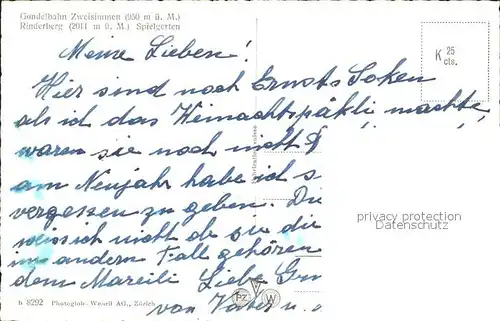 Gondelbahn Zweisimmen (950 m ü. M.)
Rinderberg (2011 m ü. M.) Spielgerten
K 25 cts.
Meine Lieben!
Hier sind noch Ernsts Soken
als ich das Weinachtspäkli machte,
waren sie noch nicht
am Neujahr habe ich s
vergessen zu geben. Die
weiss ich nicht ob zu die
im andern Fall gehören
dem Mareili Liebe Grü
von Vater u.
privacy protection
Datenschutz
b 8292 Photoglob-Wehrli AG., Zürich
PZ W